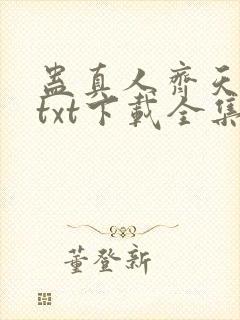 蛊真人齊天
txt下載全集
董登新